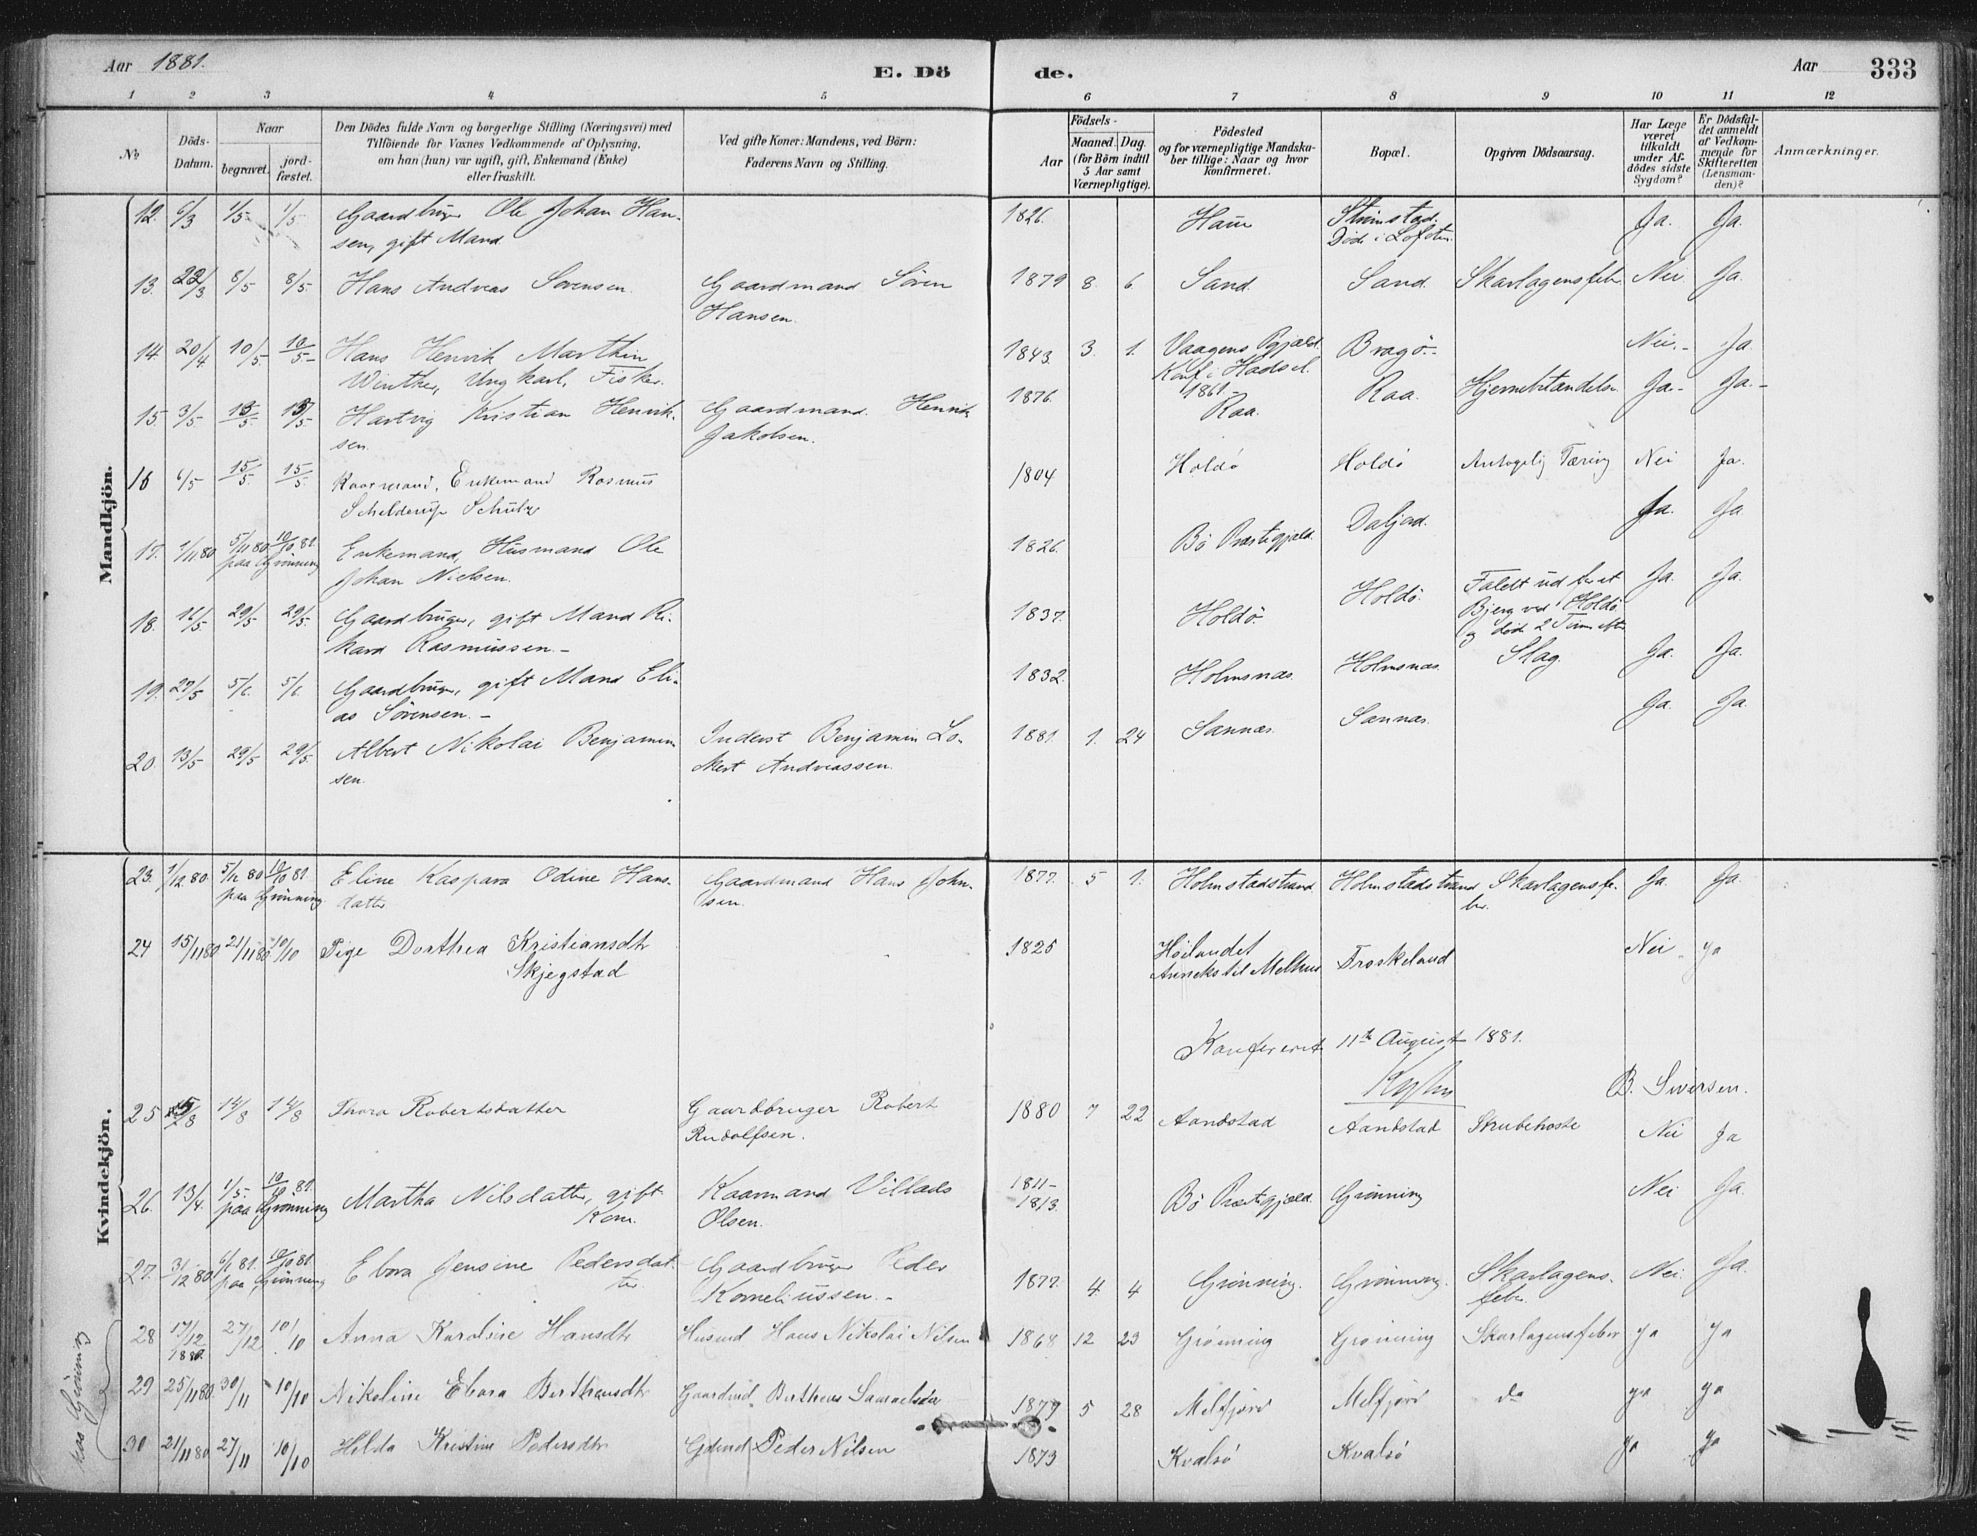 Aar 1881.
E. Dö
de.
Aar
333
1 2 3 4 5 6 7 8 9 10 11 12
No
Döds-
Datum.
Naar
begravet.
jord-
fæstet.
Den Dödes fulde Navn og borgerlige Stilling (Næringsvei) med
Tilföiende for Voxnes Vedkommende af Oplysning,
om han (hun) var ugift, gift, Enkemand (Enke)
eller fraskilt.
Ved gifte Koner: Mandens, ved Börn:
Faderens Navn og Stilling.
Födsels-
Aar
Maaned. Dag.
(for Börn indtil
5 Aar samt
Værnepligtige).
Födested
og for værnepligtige Mandska-
ber tillige: Naar og hvor
konfirmeret.
Bopæl.
Opgiven Dödsaarsag.
Har Læge
været
tilkaldt
under Af-
dödes sidste
Sygdom?
Er Dödsfal-
det anmeldt
af Vedkom-
mende for
Skifteretten
(Lensman-
den)?
Anmærkninger.
Mandkjön.
12. 6/3 1/5 1/5 Gaardbruger Ole Johan Han-
sen, gift Mand
1826. Död i Lofoten. Ja. Ja.
13. 22/3 8/5 8/5. Hans Andreas Sørensen. Gaardmand Søren
Hansen.
1879 8. 6. Sand. Sand. Skarlagensfeber Nei. Ja.
14 20/4 10/5 10/5 Hans Henrik Marthin
Winther, Ungkarl, Fisker.
1843. 3. 1. Vaagens Pgjæld.
Konf. i Hadsel
1861
Bragö. Nei. Ja.
15. 3/5 13/5 13/5 Hartvig Kristian Henrik-
sen.
Gaardmand Henrik
Jakobsen.
1876. Raa. Raa. Hjernebetændelse Ja. Ja.
16 6/5 15/5. 15/5. Enkemand Rasmus
Schelderup Schultz
1804 Holdö Holdö Antagelig Tæring Nei Ja.
17. 1/11 80 5/11 80 10/10 81.
paa Grönning
Enkemand, Husmand Ole
Johan Nielsen.
1826. Bö Præstegjæld. Ja. Ja
18. 16/5 29/5 29/5. Gaardbruger, gift Mand Ri-
kard Rasmussen.
1837. Holdö. Holdö. Faldt ud for et
Bjerg ved Holdö
og döde 2 Timer efter
Ja. Ja.
19. 29/5 5/6 5/6 Gaardbruger, gift Mand Eli-
as Sørensen.
1832. Holmsnas. Holmsnas. Slag. Ja. Ja.
20. 13/5 29/5 29/5. Albert Nikolai Benjamin
sen.
Inderst Benjamin Lo-
kert Andreassen.
1881. 1. 24 Sannas. Sannas. Ja. Ja.
Kvindekjön.
23. 1/12 80. 5/12 80 10/10 81.
paa Grönning
Eline Kaspara Odine Hans-
datter
Gaardmand Hans John-
sen.
1877. 5 1. Holmstadstrand Holmstadstrand Skarlagensfe-
ber.
Ja. Ja.
24 15/11 80 21/11 80 10/10 Pige Dorthea Kristiansdtr
Skjegstad
1825 Höilandet
Anneks til Melhus
Froskeland Nei Ja
Konfereret 11te August 1881.
B. Sivertsen.
25 5/8 14/8 14/8 Thora Robertsdatter Gaardbruger Robert
Rudolfsen.
1880 7 22 Aandstad Aandstad Skrubehoste Nei Ja
26. 13/4. 1/5. 10/10 81.
paa Grönning
Martha Nilsdatter, gift
Kone.
Kaarmand Villads
Olsen.
1811-
1813.
Bö Præstegjæld. Grönning Nei Ja.
27. 31/12 80 6/1 81. 10/10 81.
paa Grönning
Ebora Jensine Pedersdat-
ter.
Gaardbruger Peder
Korneliussen.
1877. 4. 4 Grönning. Grönning. Skarlagens-
feber
Nei. Ja.
28 17/12 1880. 27/12 10/10 Anna Karoline Hansdtr Husmd Hans Nikolai Nilsen
1868 12 23 Grönning Grönning Skarlagensfeber Ja Ja
29 25/11 80. 30/11 10/10 Nikoline Ebora Berthensdtr Gaardmd. Bertheus Samuelsen
1879 5 28 Melfjord Melfjord do Ja Ja
30 21/11 80 27/11 10/10 Hilda Kristine Pedersdtr Gdmd Peder Nilsen
1873 Kvalsö Kvalsö Ja Ja